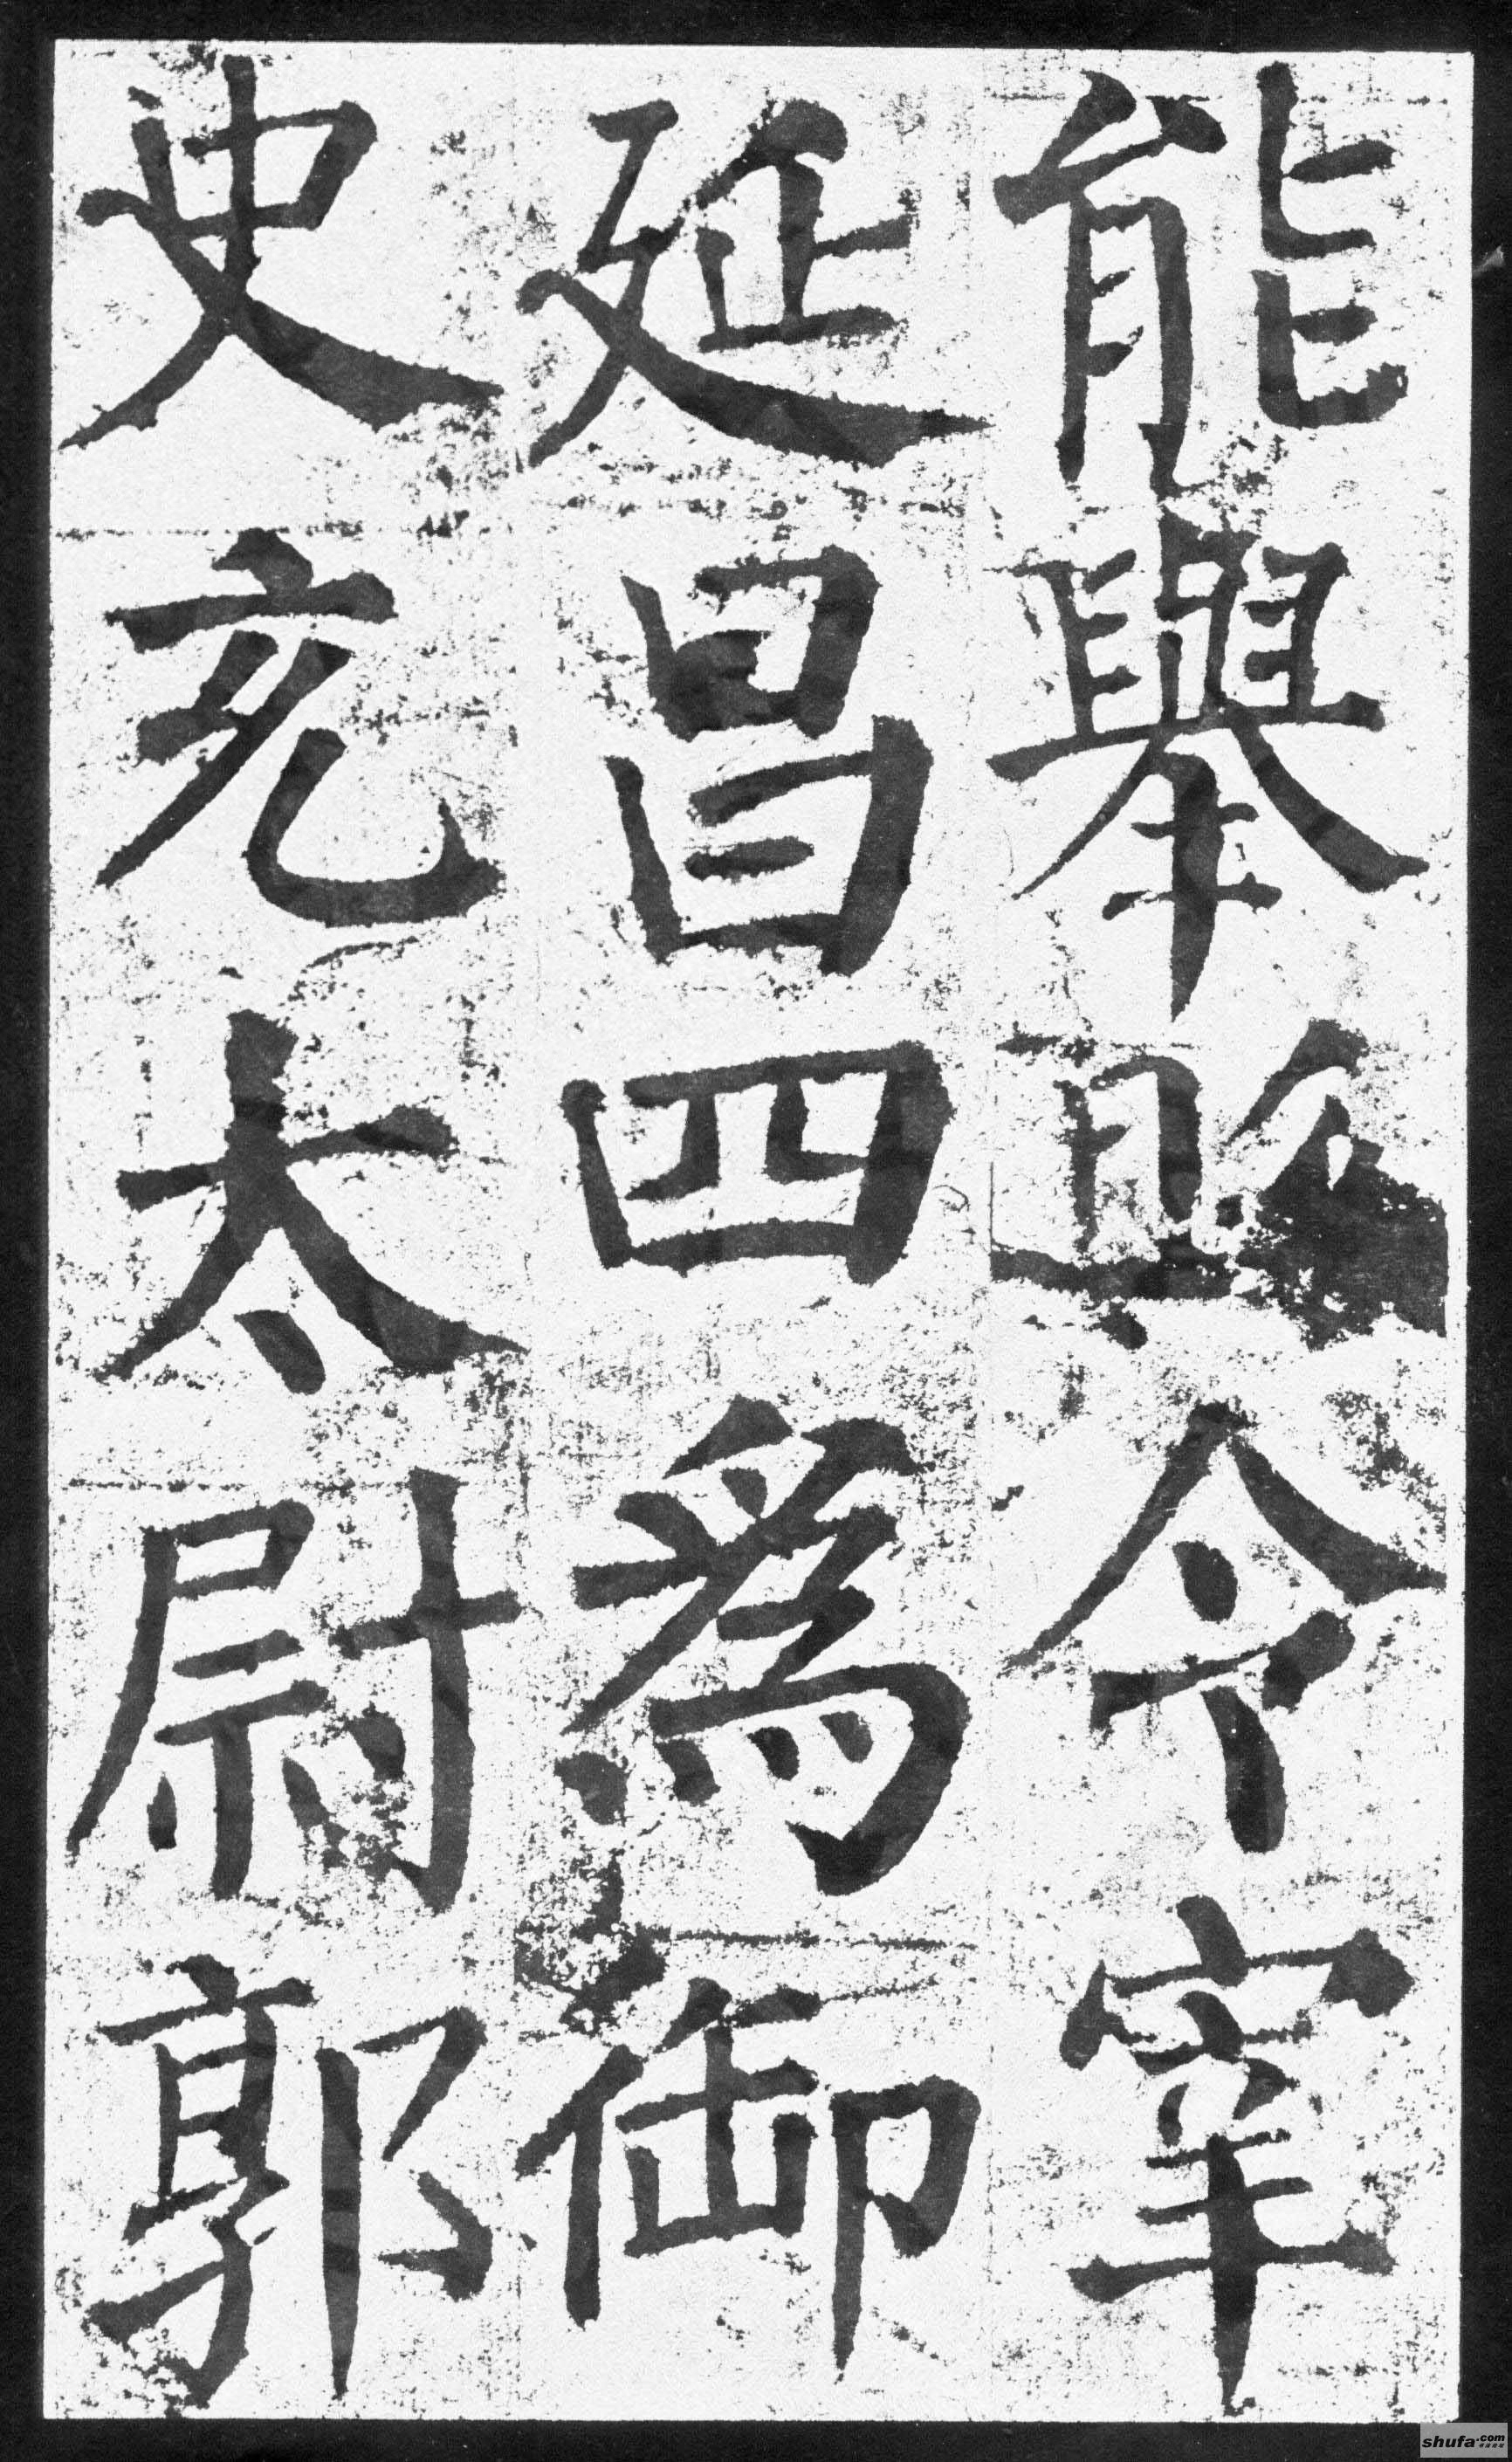 能舉縣令宰
延昌四爲御
史充太尉郭
shufa.com